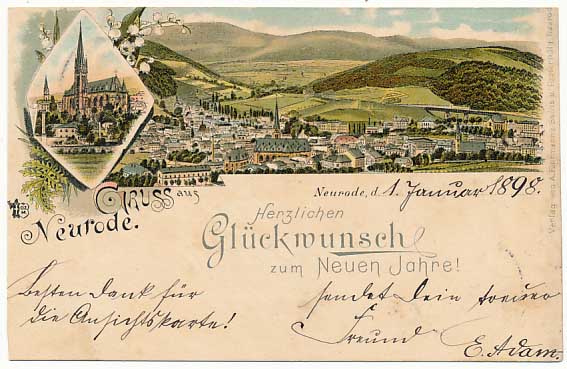 Gruss aus
Neurode.
Neurode, d. 1. Januar 1898.
Herzlichen
Glückwunsch
zum Neuen Jahre!
Besten Dank für
die Ansichtskarte!
sendet Dein treuer
Freund
E. Adam.
Verlag von A.